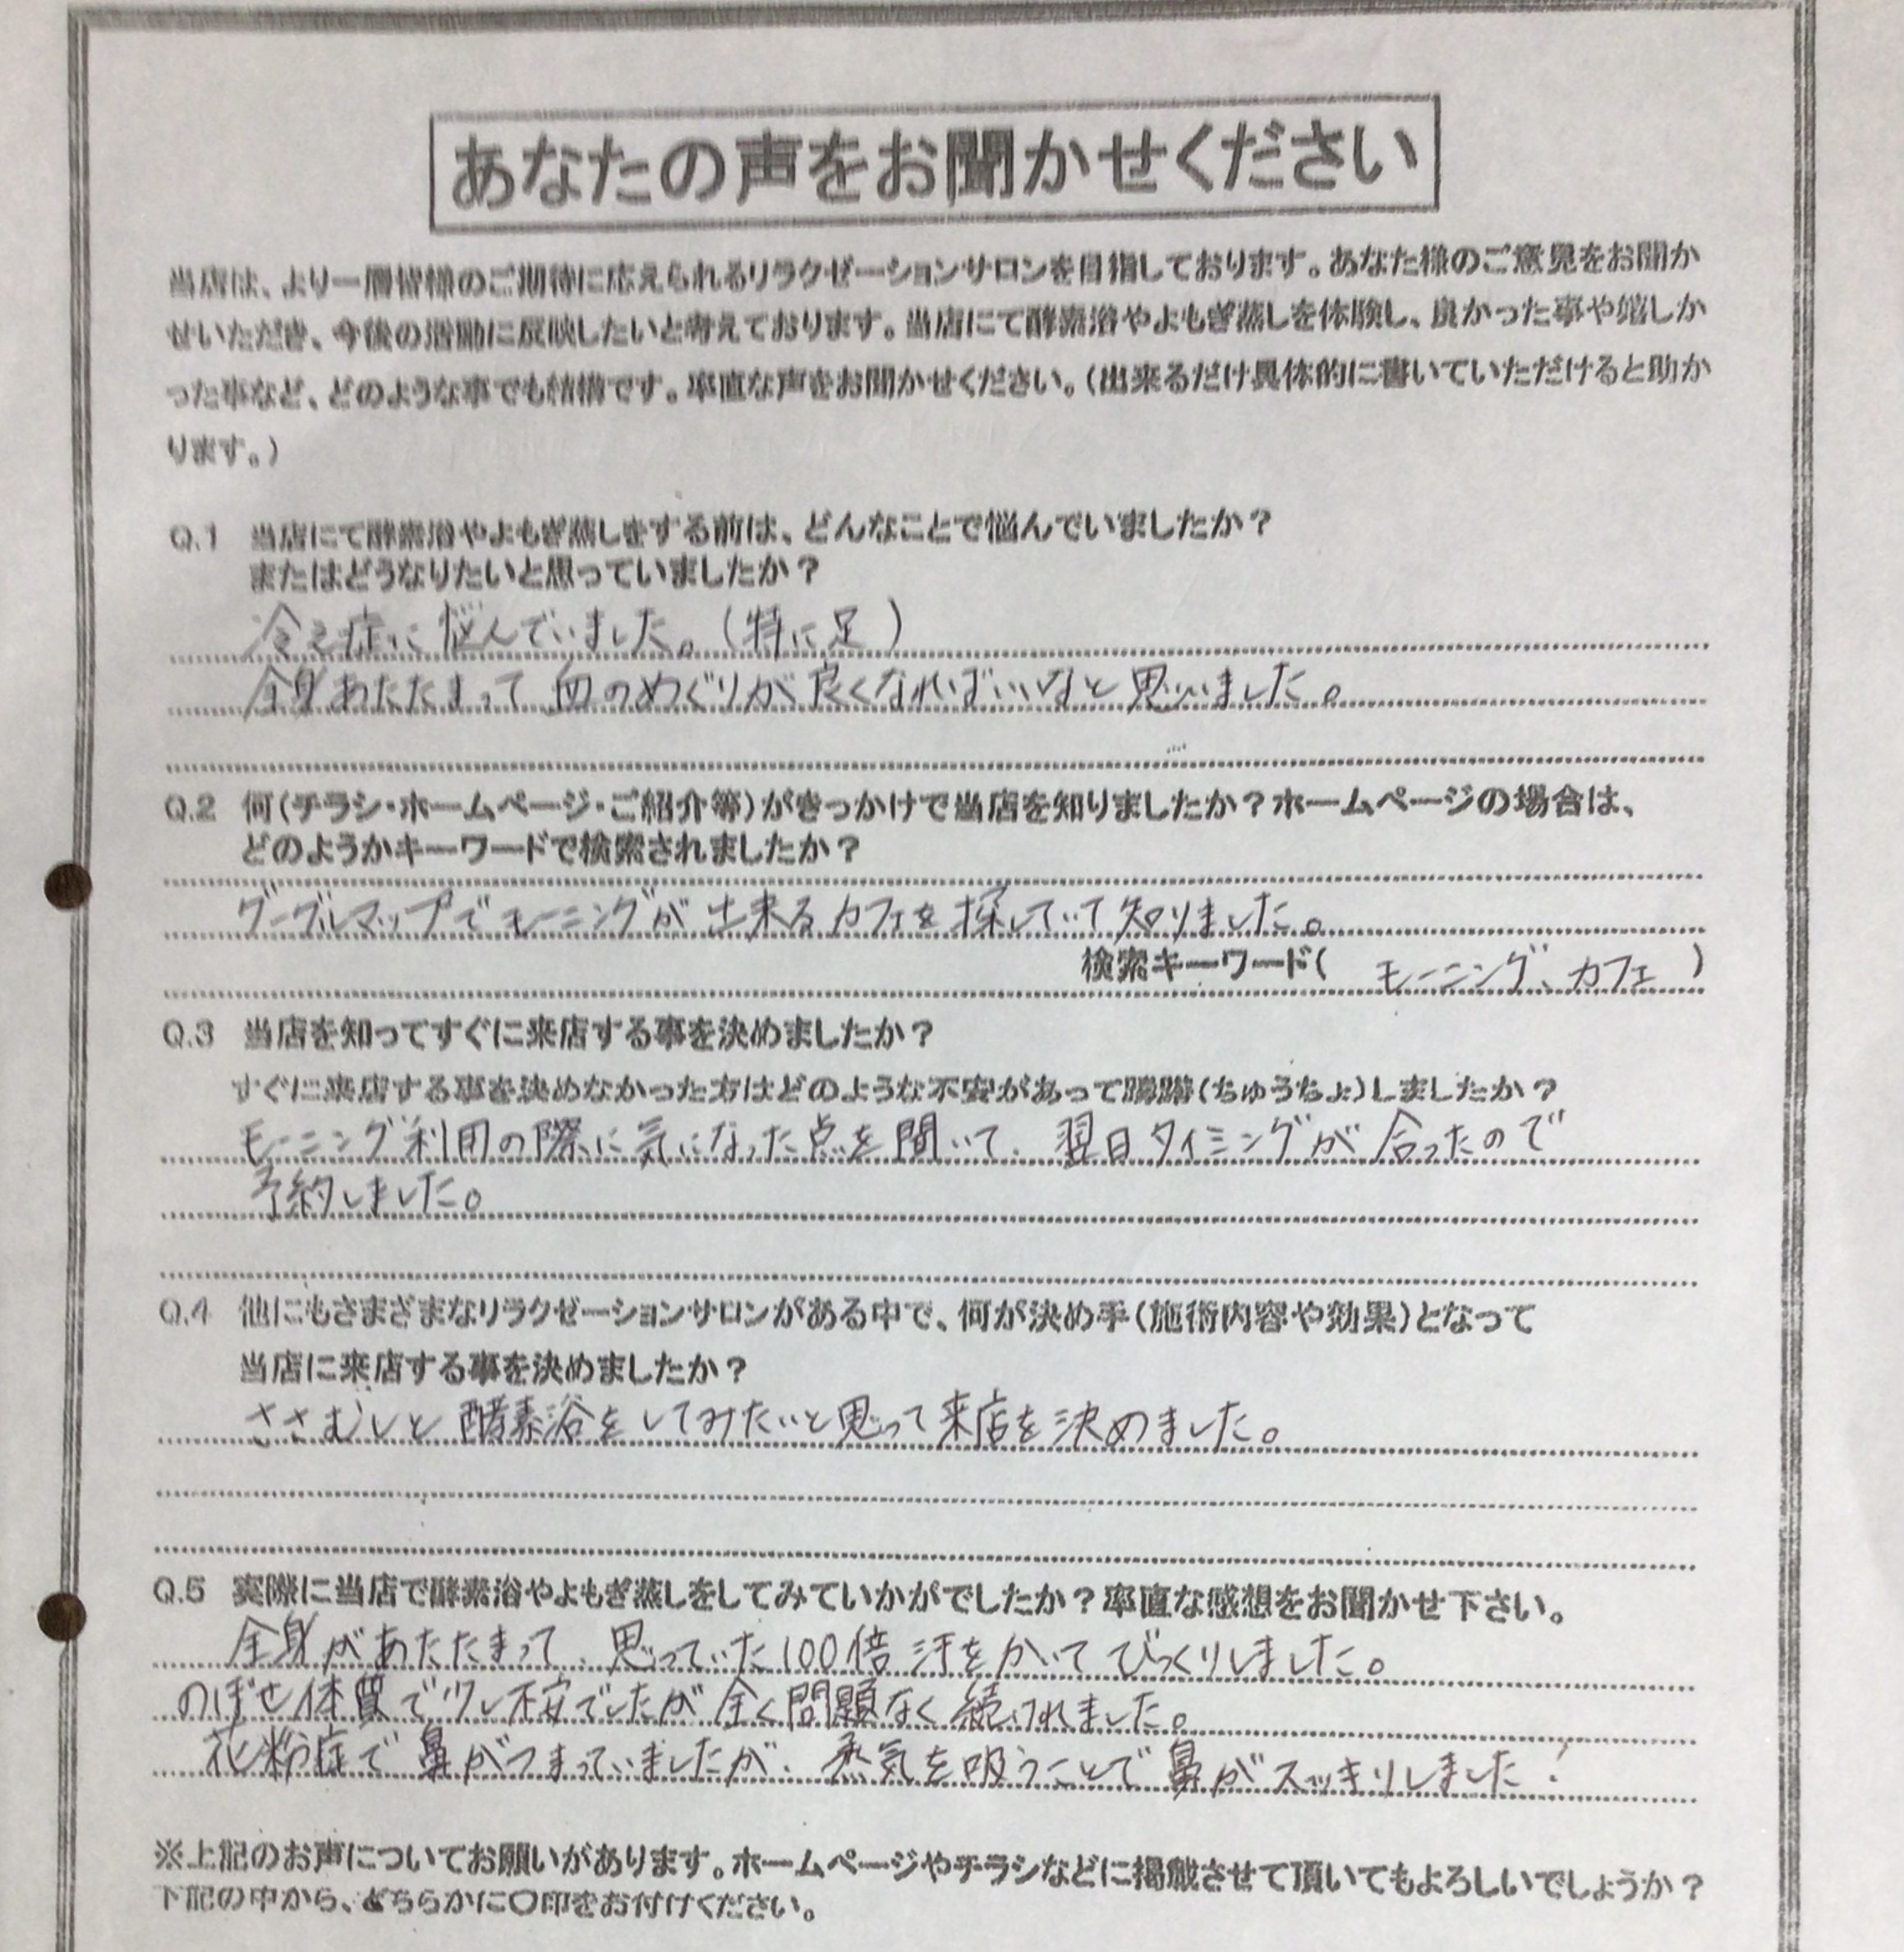 あなたの声をお聞かせください
当店は、より一層皆様のご期待に応えられるリラクゼーションサロンを目指しております。あなた様のご意見をお聞か
せいただき、今後の活動に反映したいと考えております。当店にて酵素浴やよもぎ蒸しを体験し、良かった事や嬉しか
った事など、どのような事でも結構です。率直な声をお聞かせください。（出来るだけ具体的に書いていただけると助か
ります。）
Q.1 当店にて酵素浴やよもぎ蒸しをする前は、どんなことで悩んでいましたか？
またはどうなりたいと思っていましたか？
冷え症に悩んでいました。（特に足）
全身あたたまって血のめぐりが良くなればいいなと思いました。
Q.2 何（チラシ・ホームページ・ご紹介等）がきっかけで当店を知りましたか？ホームページの場合は、
どのようかキーワードで検索されましたか？
グーグルマップでモーニングが出来るカフェを探していて知りました。
検索キーワード（ モーニング、カフェ ）
Q.3 当店を知ってすぐに来店する事を決めましたか？
すぐに来店する事を決めなかった方はどのような不安があって躊躇（ちゅうちょ）しましたか？
モーニング利用の際に気になった点を聞いて、翌日タイミングが合ったので
予約しました。
Q.4 他にもさまざまなリラクゼーションサロンがある中で、何が決め手（施術内容や効果）となって
当店に来店する事を決めましたか？
ささむしと酵素浴をしてみたいと思って来店を決めました。
Q.5 実際に当店で酵素浴やよもぎ蒸しをしてみていかがでしたか？率直な感想をお聞かせ下さい。
全身があたたまって、思っていた100倍汗をかいてびっくりしました。
のぼせ体質で少し不安でしたが全く問題なく続けれました。
花粉症で鼻がつまっていましたが、蒸気を吸うことで鼻がスッキリしました！
※上記のお声についてお願いがあります。ホームページやチラシなどに掲載させて頂いてもよろしいでしょうか？
下記の中から、どちらかに○印をお付けください。